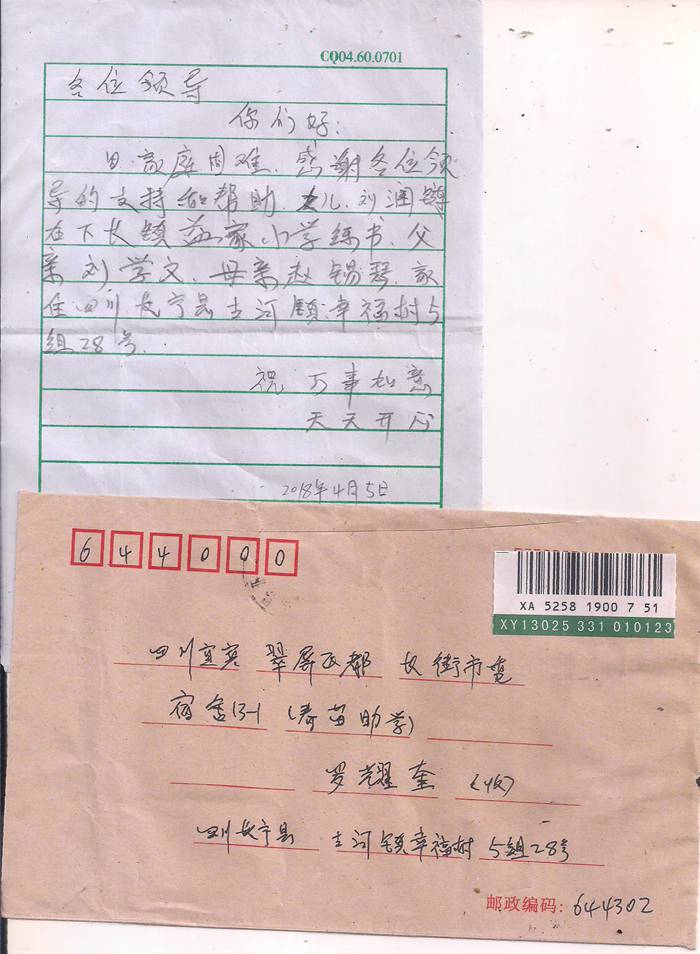 CQ04.60.0701
各位领导
你们好：
因家庭困难，感谢各位领
导的支持和帮助，女儿，刘润
在下长镇 家小学练书，父
亲刘学文，母亲赵锡琴，家
住四川长宁县古河镇幸福村5
组28号。
祝 万事如意
天天开心
2018年4月5日
644000
XA 5258 1900 7 51
XY13025 331 010123
四川宜宾 翠屏区 都长街市
宿舍13-1 (春苗助学)
罗耀奎 (收)
四川长宁县 古河镇幸福村 5组28号
邮政编码：644302